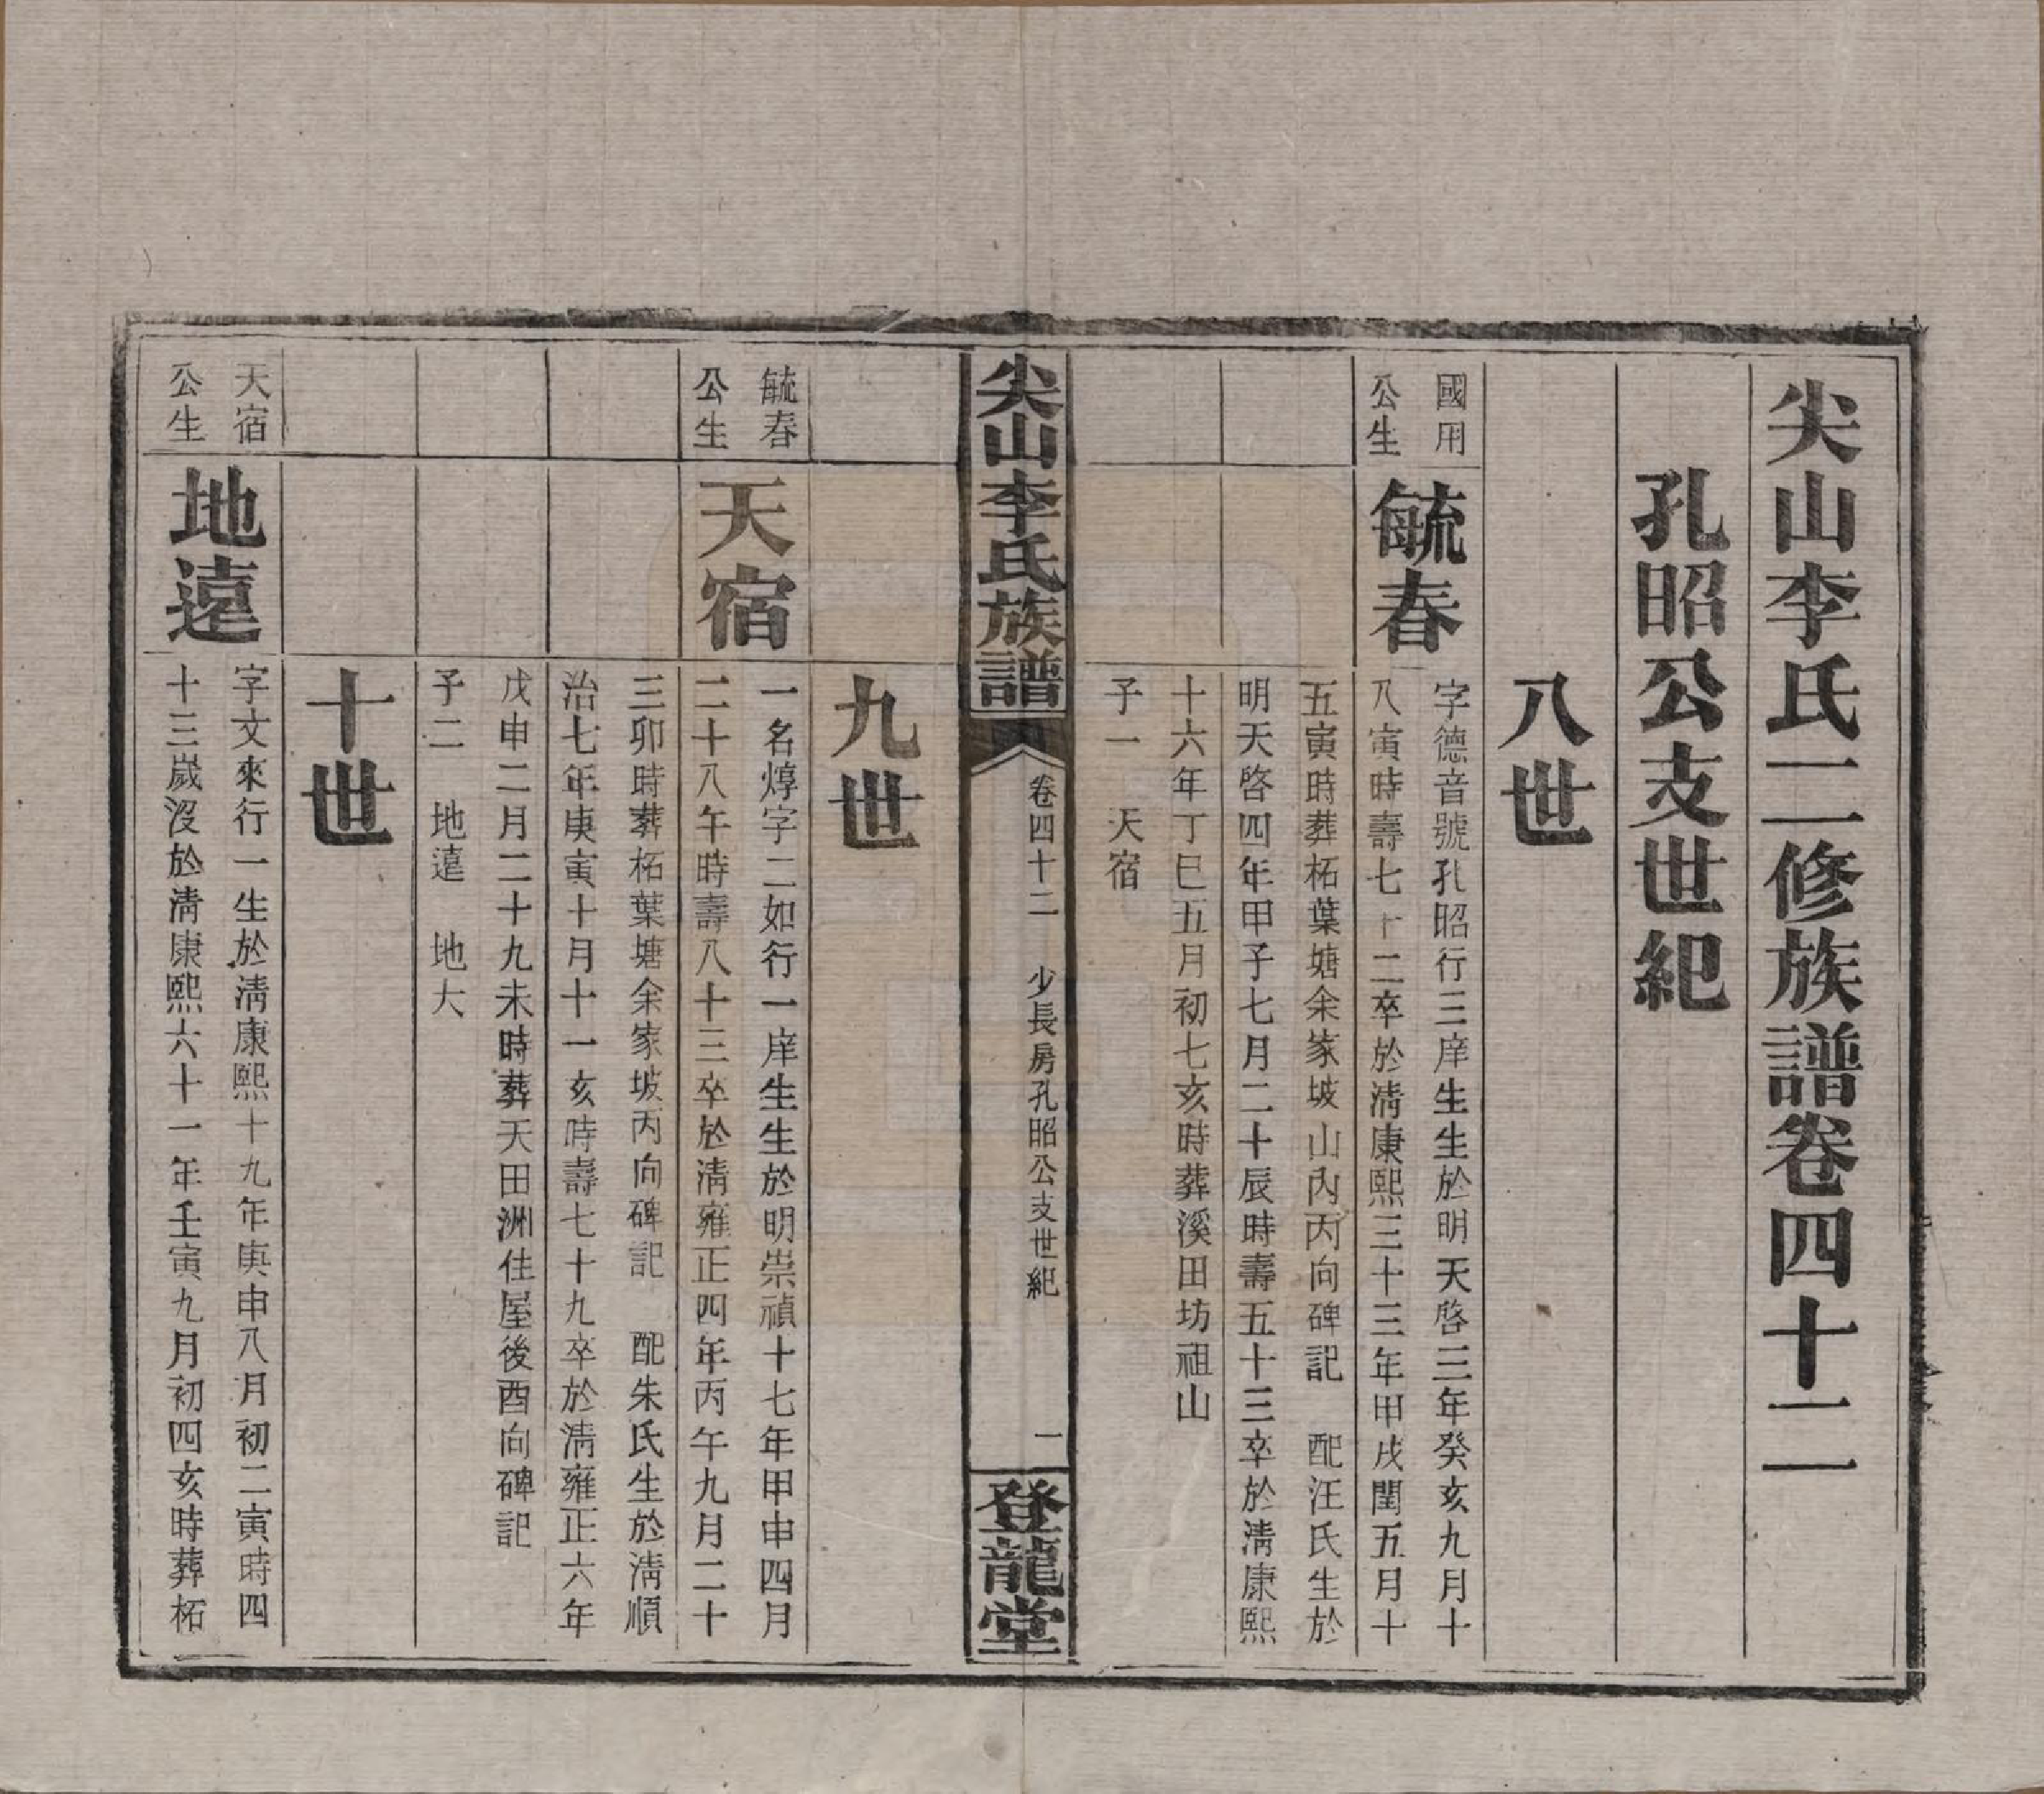 尖山李氏二修族譜卷四十二
孔昭公支世紀
八世
國用
公生
毓春
字德音號孔昭行三庠生生於明天啓三年癸亥九月十
八寅時壽七十二卒於淸康熙三十三年甲戌閏五月十
五寅時葬柘葉塘余家坡山內丙向碑記　配汪氏生於
明天啓四年甲子七月二十辰時壽五十三卒於淸康熙
十六年丁巳五月初七亥時葬溪田坊祖山
子一　天宿
尖山李氏族譜
卷四十二　少長房孔昭公支世紀
一
登龍堂
九世
毓春
公生
天宿
一名焞字二如行一庠生生於明崇禎十七年甲申四月
二十八午時壽八十三卒於淸雍正四年丙午九月二十
三卯時葬柘葉塘余家坡丙向碑記　配朱氏生於淸順
治七年庚寅十月十一亥時壽七十九卒於淸雍正六年
戊申二月二十九未時葬天田洲住屋後酉向碑記
子二　地遠　地大
十世
天宿
公生
地遠
字文來行一生於淸康熙十九年庚申八月初二寅時四
十三歲沒於淸康熙六十一年壬寅九月初四亥時葬柘